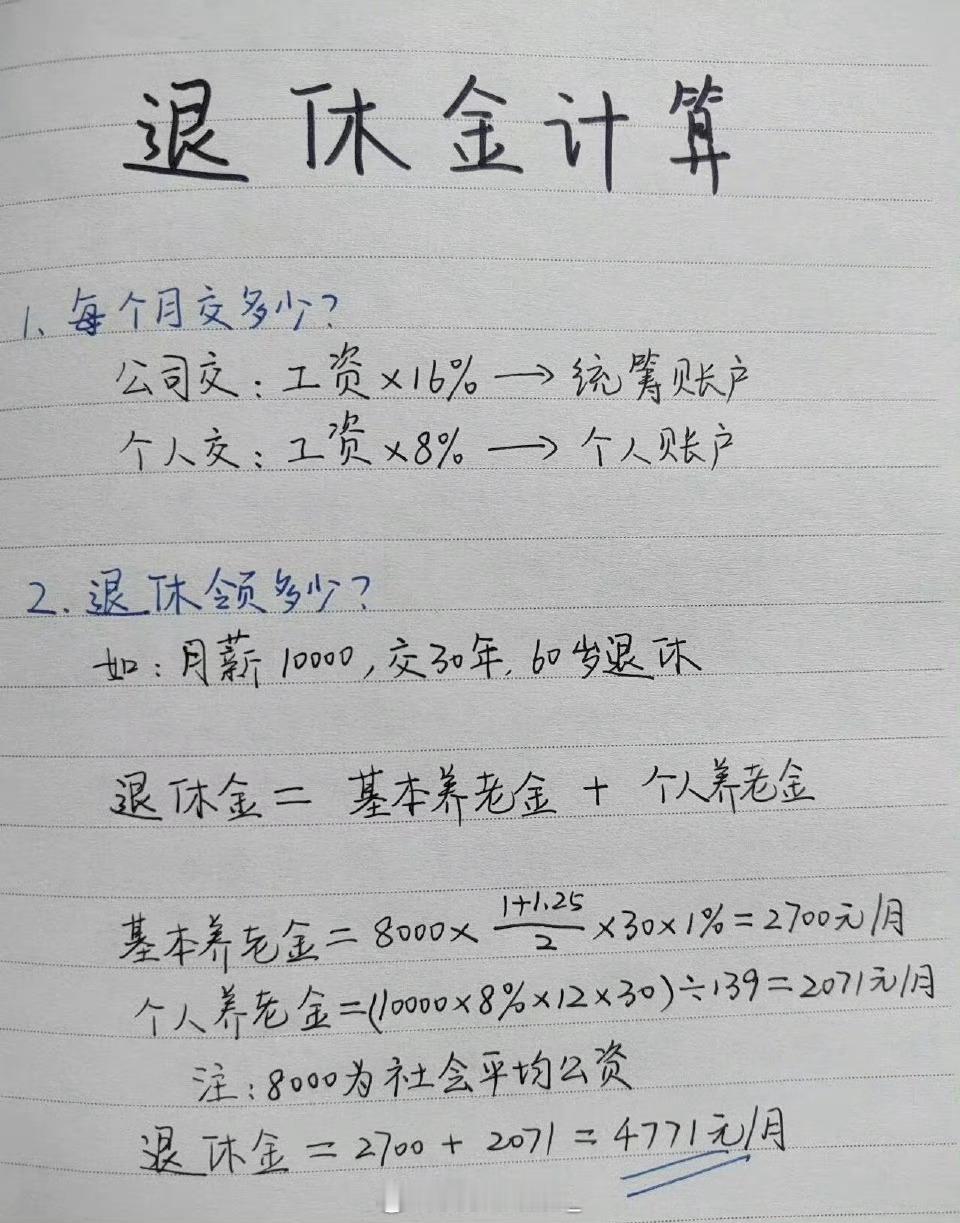 退休金计算
1、每个月交多少?
公司交：工资×16% → 统筹账户
个人交：工资×8% → 个人账户
2.退休领多少?
如：月薪10000，交30年，60岁退休
退休金 = 基本养老金 + 个人养老金
基本养老金 = 8000× (1+1.25)/2 ×30×1% = 2700元/月
个人养老金=(10000×8%×12×30)÷139=2071元/月
注：8000为社会平均公资
退休金 = 2700 + 2071 = 4771元/月